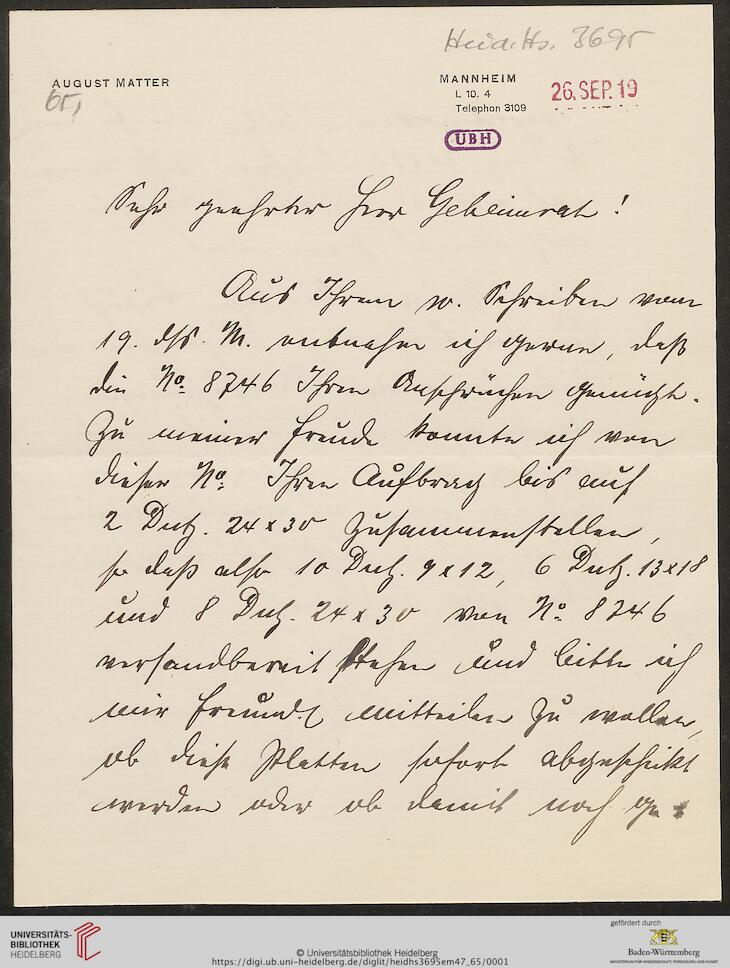 Heid. Hs. 3695
AUGUST MATTER
65,
MANNHEIM
L 10. 4
Telephon 3109
26. SEP. 19
UBH
Sehr geehrter Herr Geheimrat!
Aus Ihrem w. Schreiben vom
19. dss. M. entnehme ich gerne, daß
die No. 8746 Ihren Ansprüchen genügte.
Zu meiner Freude konnte ich von
dieser No. Ihren Auftrag bis auf
2 Dutz. 24x30 zusammenstellen,
so daß also 10 Dutz. 9x12, 6 Dutz. 13x18
und 8 Dutz. 24x30 von No. 8746
versandbereit stehen und bitte ich
mir freundl. mitteilen zu wollen,
ob diese Platten sofort abgeschickt
werden oder ob damit noch ge
UNIVERSITÄTS-
BIBLIOTHEK
HEIDELBERG
© Universitätsbibliothek Heidelberg
https://digi.ub.uni-heidelberg.de/diglit/heidhs3695em47_65/0001
gefördert durch
Baden-Württemberg
MINISTERIUM FÜR WISSENSCHAFT, FORSCHUNG UND KUNST